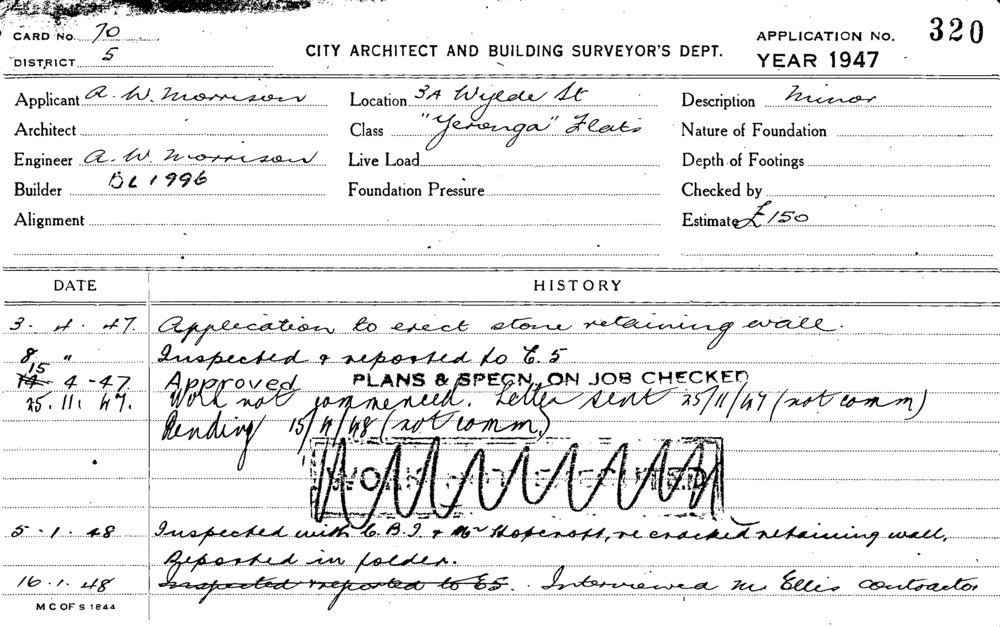 CARD No. 70
DISTRICT 5
CITY ARCHITECT AND BUILDING SURVEYOR'S DEPT.
APPLICATION No. 320
YEAR 1947
Applicant A. W. Morrison
Location 3A Wylde St
Description Minor
Architect
Class "Yeronga" Flats
Nature of Foundation
Engineer A. W. Morrison
Live Load
Depth of Footings
Builder BL 1996
Foundation Pressure
Checked by
Alignment
Estimate £150
DATE HISTORY
3. 4. 47. Application to erect stone retaining wall.
8 " Inspected & reported to E.5
15
14 4-47 Approved PLANS & SPECN. ON JOB CHECKED
25. 11. 47. Work not commenced. Letter sent 25/11/47 (not comm)
Pending 15/4/48 (not comm.)
WORK
5-1-48 Inspected with C.B.I. & Mr Hopcroft, re cracked retaining wall.
Reported in folder.
16.1.48 Inspected & reported to E5. Interviewed Mr Ellis contractor
M C OF S 1844